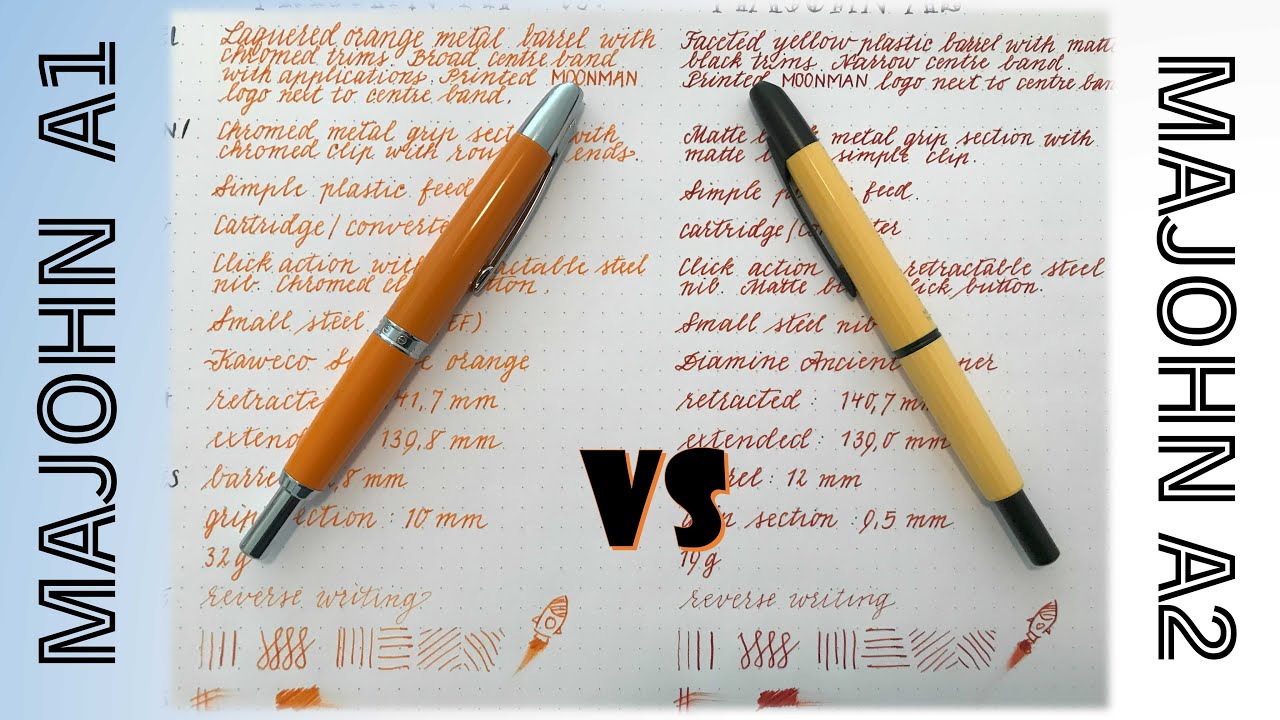 MAJOHN A1
Laquered orange metal barrel with
chromed trims. Broad centre band
with applications. Printed MOONMAN
logo next to centre band.
Chromed metal grip section with
chromed clip with rou ends.
Simple plastic feed
Cartridge/converte
Click action with retractable steel
nib. Chromed cl tton.
Small steel (EF)
Kaweco S e orange
retracte 41,7 mm
extend 139,8 mm
barre ,8 mm
grip section: 10 mm
32g
reverse writing
VS
Faceted yellow plastic barrel with matte
black trims. Narrow centre band.
Printed MOONMAN logo next to centre ban
Matte b metal grip section with
matte b simple clip.
Simple p feed.
cartridge/co ter
Click action retractable steel
nib. Matte bl click button.
Small steel nib
Diamine Ancient ner
retracted: 140,7 m
extended: 139,0 mm
rel: 12 mm
section: 9,5 mm
19g
reverse writing
MAJOHN A2